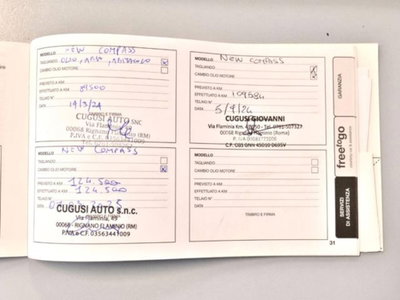 MODELLO NEW COMPASS
TAGLIANDO OLIO, ARIA, ABITACOLO
CAMBIO OLIO MOTORE
PREVISTO A KM
EFFETTUATO A KM 84500
TELAIO N°
DATA 14/3/24
TIMBRO E FIRMA
CUGUSI AUTO SNC
Via Flaminia
00068 Rignano Flaminio (RM)
P.IVA e C.F. 03563441009
MODELLO New COMPASS
TAGLIANDO
CAMBIO OLIO MOTORE
PREVISTO A KM
EFFETTUATO A KM 109584
TELAIO N°
DATA 5/9/24
CUGUSI GIOVANNI
Via Flaminia Km. 40,050 - Tel. 0761 507327
00068 Rignano Flaminio (Roma)
MODELLO NEW COMPASS
TAGLIANDO
CAMBIO OLIO MOTORE
PREVISTO A KM 124.500
EFFETTUATO A KM 124.500
TELAIO N°
DATA
CUGUSI AUTO s.n.c.
Via Flaminia, 49
00068 - RIGNANO FLAMINIO (RM)
P.IVA e C.F. 03563441009
MODELLO
TAGLIANDO
CAMBIO OLIO MOTORE
PREVISTO A KM
EFFETTUATO A KM
TELAIO N°
DATA
TIMBRO E FIRMA
31
GARANZIA
freetogo
SERVIZI
DI ASSISTENZA